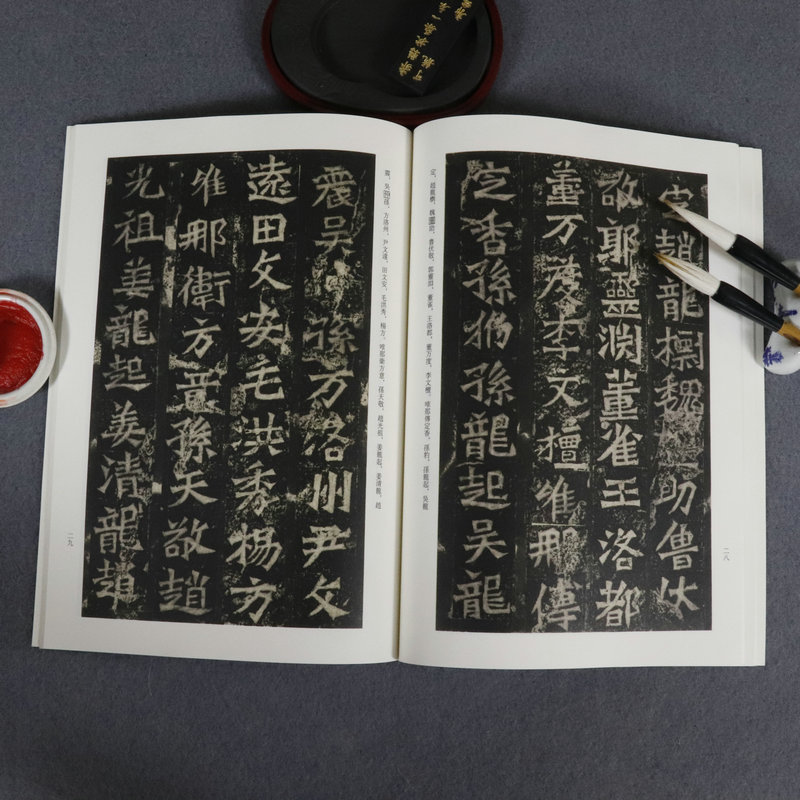 定趙龍標魏助魯伏
敬郭靈渊董雀王洛都
董万度李文檀維那傅
定香孫豹孫龍起吴龍
定、趙龍標、魏助、魯伏敬、郭靈淵、董雀、王洛都、董万度、李文檀、唯那傅定香、孫豹、孫龍起、吳龍
二八
震吴孫方洛州尹文
遠田文安毛洪秀楊方
維那衛方意孫天敬趙
光祖姜龍起姜清龍趙
震、吳孫、方洛州、尹文遠、田文安、毛洪秀、楊方、唯那衛方意、孫天敬、趙光祖、姜龍起、姜清龍、趙
二九